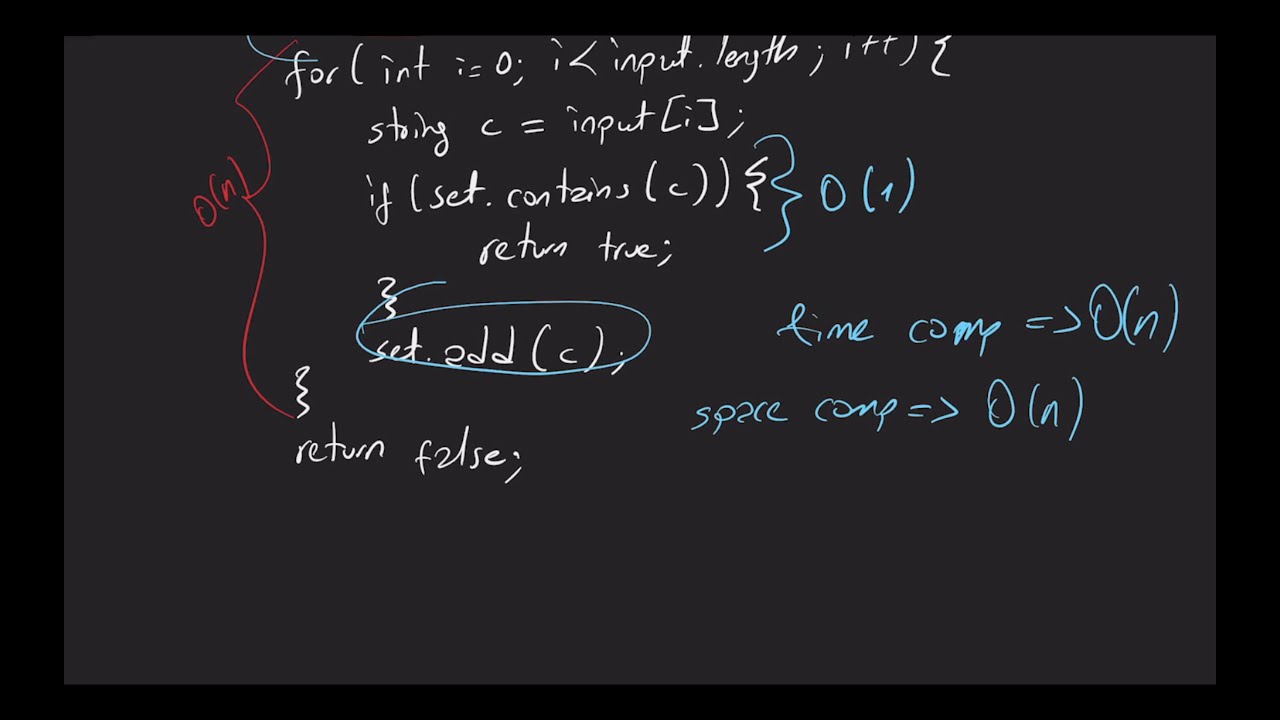 for( int i=0; i< input.length; i++) {
string c = input[i];
if (set.contains(c)) {
O(1)
O(n)
return true;
}
set.add(c);
time comp => O(n)
}
space comp => O(n)
return false;